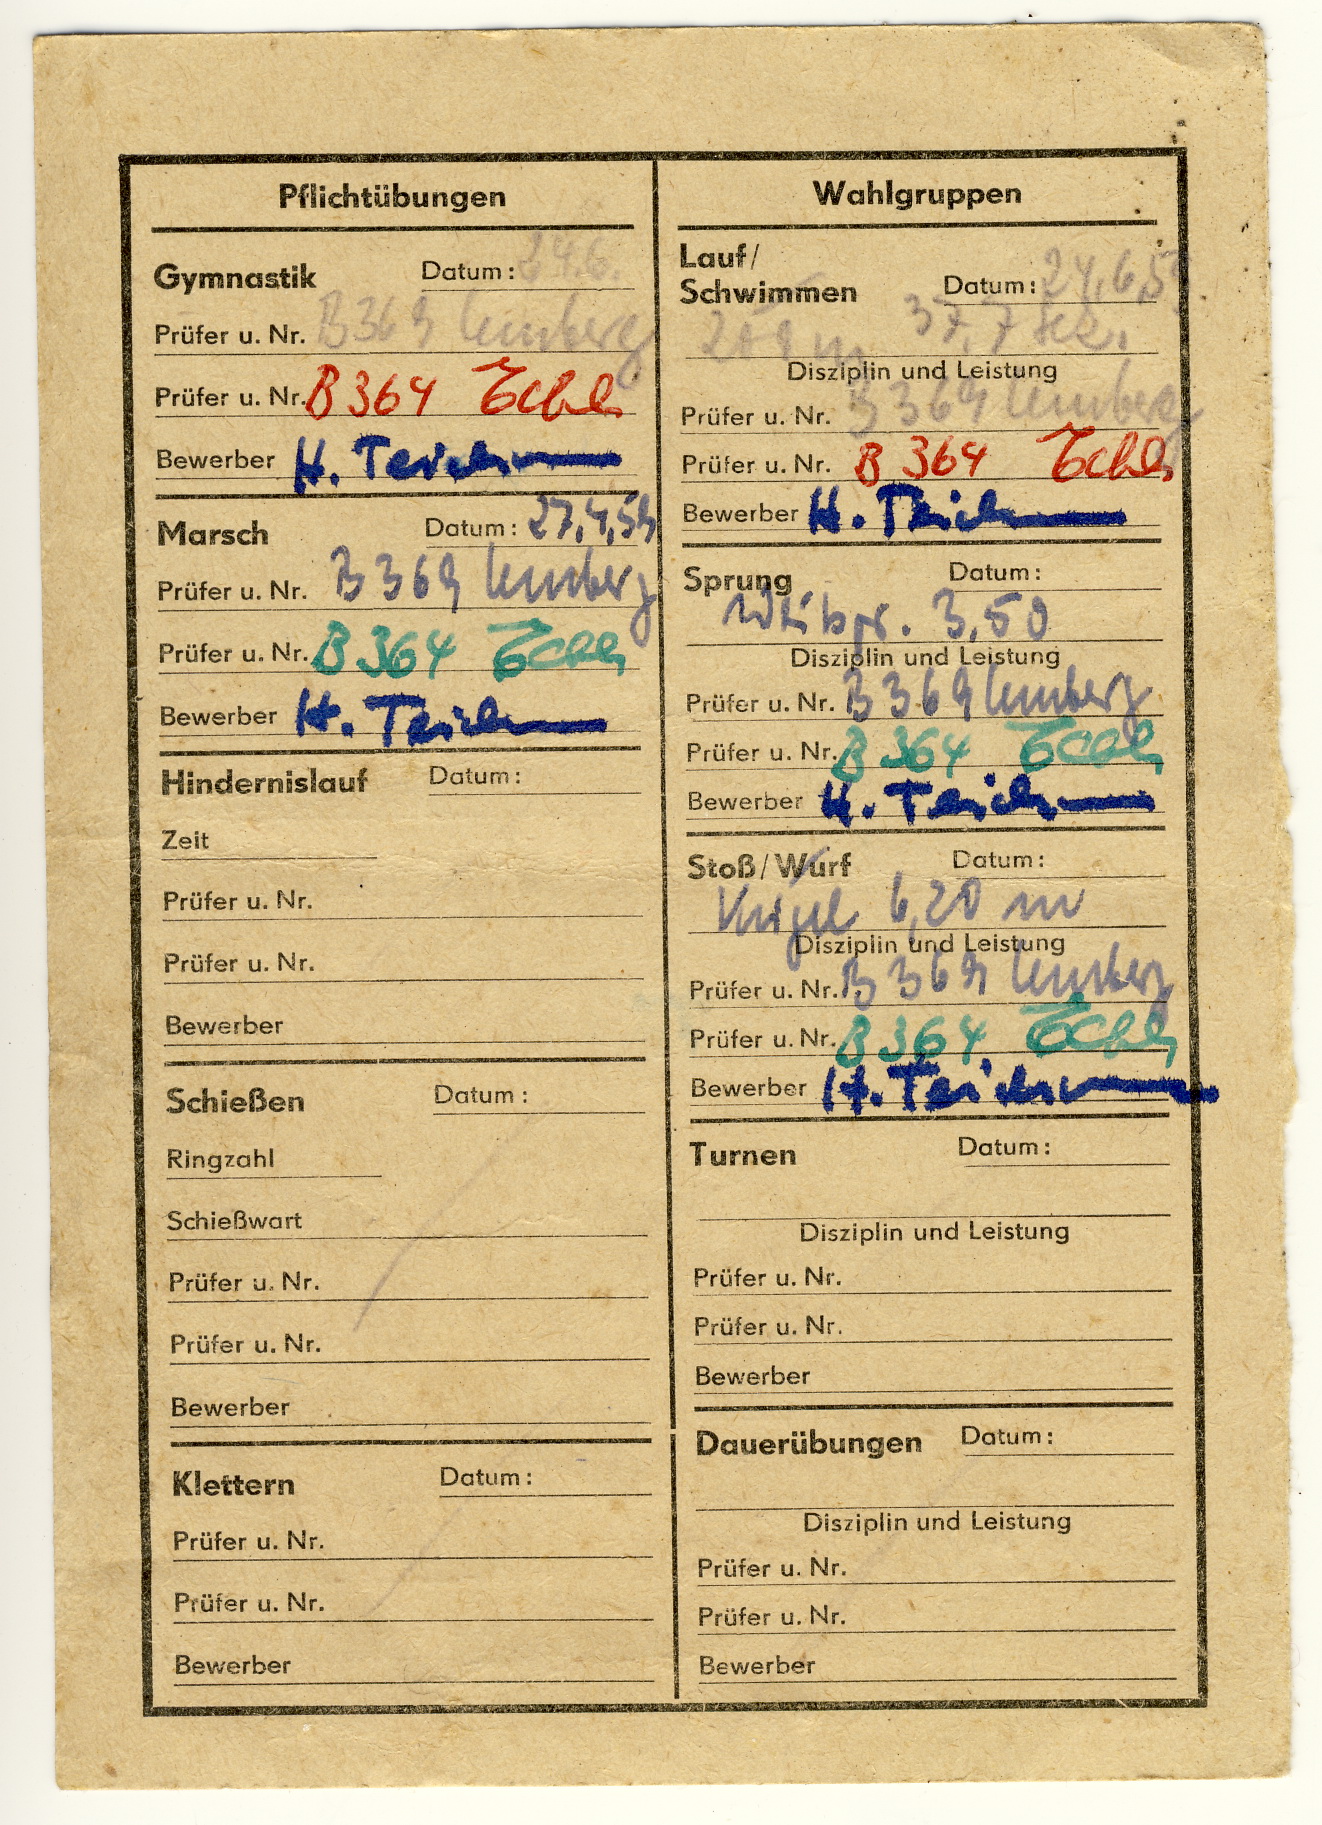 Pflichtübungen
Gymnastik Datum: 24.6.
Prüfer u. Nr. B 369
Prüfer u. Nr. B 364
Bewerber H.
Marsch Datum: 27.4.59
Prüfer u. Nr. B 369
Prüfer u. Nr. B 364
Bewerber H.
Hindernislauf Datum:
Zeit
Prüfer u. Nr.
Prüfer u. Nr.
Bewerber
Schießen Datum:
Ringzahl
Schießwart
Prüfer u. Nr.
Prüfer u. Nr.
Bewerber
Klettern Datum:
Prüfer u. Nr.
Prüfer u. Nr.
Bewerber
Wahlgruppen
Lauf/
Schwimmen Datum: 24.6.59
200 m 37,7 sek.
Disziplin und Leistung
Prüfer u. Nr. B 369
Prüfer u. Nr. B 364
Bewerber H.
Sprung Datum:
3,50
Disziplin und Leistung
Prüfer u. Nr. B 369
Prüfer u. Nr. B 364
Bewerber H.
Stoß/Wurf Datum:
Kugel 6,20 m
Disziplin und Leistung
Prüfer u. Nr. B 369
Prüfer u. Nr. B 364
Bewerber H.
Turnen Datum:
Disziplin und Leistung
Prüfer u. Nr.
Prüfer u. Nr.
Bewerber
Dauerübungen Datum:
Disziplin und Leistung
Prüfer u. Nr.
Prüfer u. Nr.
Bewerber